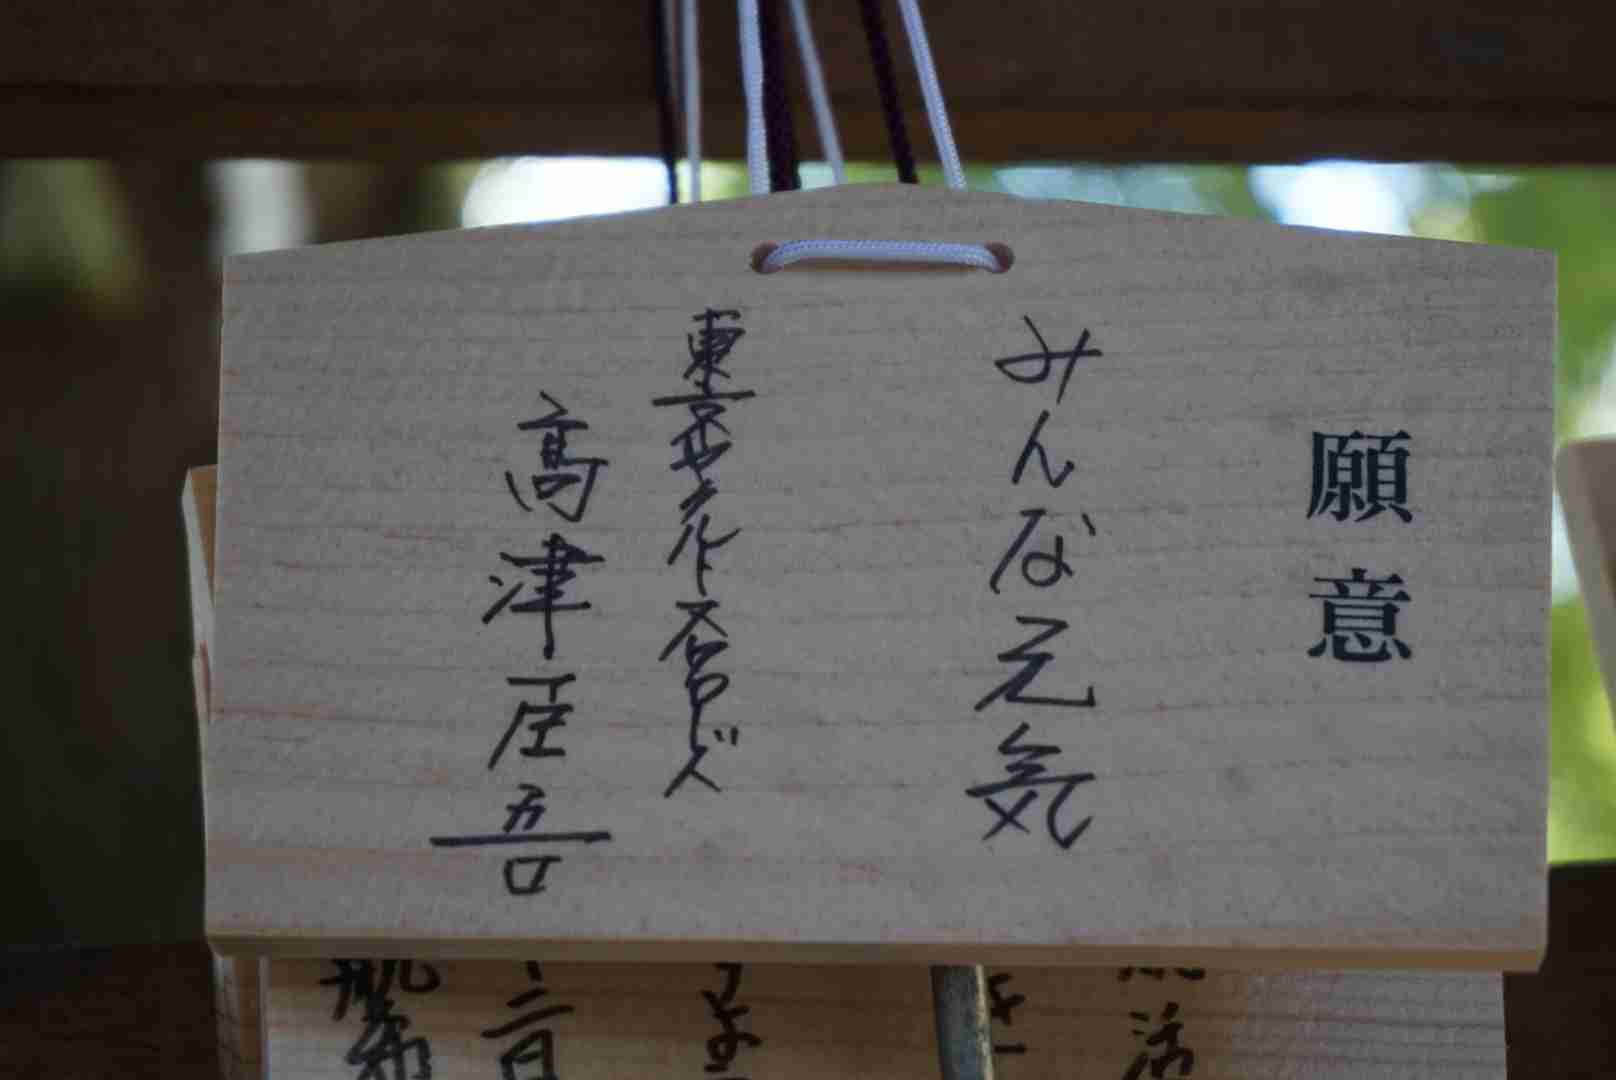 願意
みんな元気
東京ヤクルトスワローズ
高津臣吾
二日
活